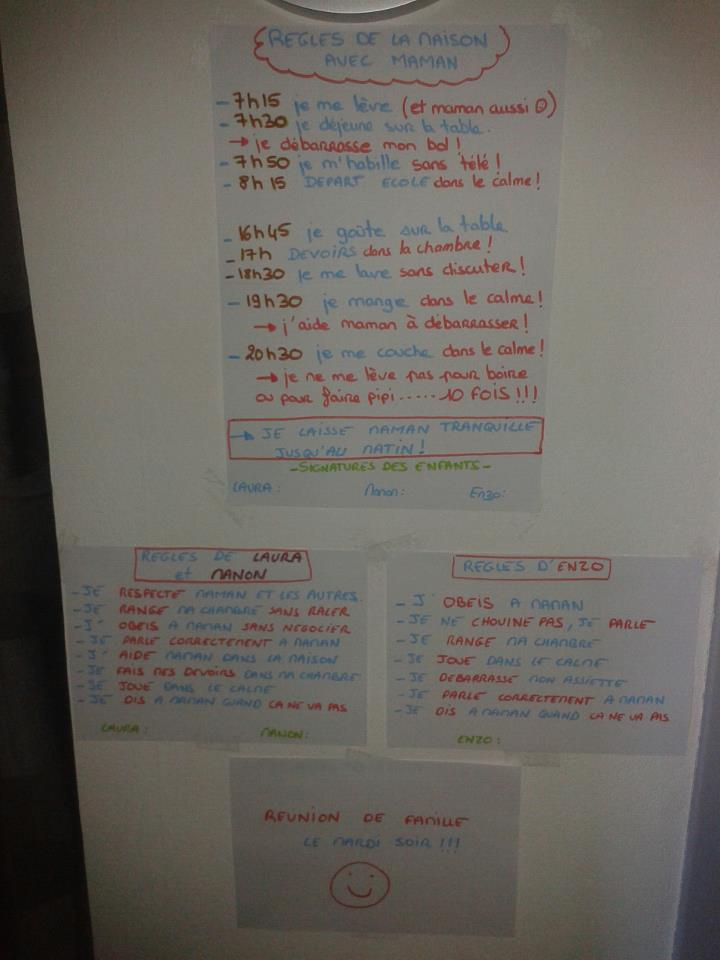 REGLES DE LA MAISON
AVEC MAMAN
- 7h15 je me lève (et maman aussi ☺)
- 7h30 je déjeune sur la table.
→ je débarrasse mon bol !
- 7h50 je m'habille sans télé !
- 8h15 DEPART ECOLE dans le calme !
- 16h45 je goûte sur la table
- 17h DEVOIRS dans la chambre !
- 18h30 je me lave sans discuter !
- 19h30 je mange dans le calme !
→ j'aide maman à débarrasser !
- 20h30 je me couche dans le calme !
→ je ne me lève pas pour boire
ou pour faire pipi ..... 10 FOIS !!!
→ JE LAISSE MAMAN TRANQUILLE
JUSQU'AU MATIN !
- SIGNATURES DES ENFANTS -
LAURA : Manon : Enzo :
REGLES DE LAURA
et MANON
- JE RESPECTE MAMAN ET LES AUTRES.
- JE RANGE MA CHAMBRE SANS RALER
- J' OBEIS A MAMAN SANS NEGOCIER
- JE PARLE CORRECTEMENT A MAMAN
- J' AIDE MAMAN DANS LA MAISON
- JE FAIS MES DEVOIRS DANS MA CHAMBRE
- JE JOUE DANS LE CALME
- JE DIS A MAMAN QUAND CA NE VA PAS
LAURA : MANON :
REGLES D'ENZO
- J' OBEIS A MAMAN
- JE NE CHOUINE PAS, JE PARLE
- JE RANGE MA CHAMBRE
- JE JOUE DANS LE CALME
- JE DEBARRASSE MON ASSIETTE
- JE PARLE CORRECTEMENT A MAMAN
- JE DIS A MAMAN QUAND CA NE VA PAS
ENZO :
REUNION DE FAMILLE
LE MARDI SOIR !!!